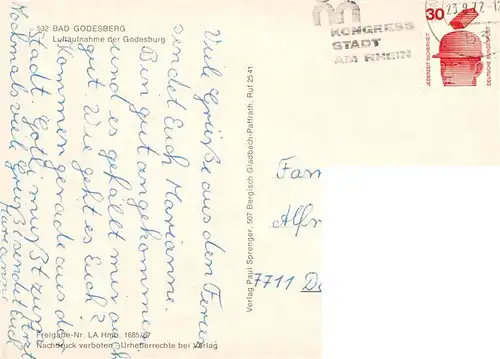 532 BAD GODESBERG
Luftaufnahme der Godesburg
KONGRESS
STADT
AM RHEIN
23.8.72-12
30
JEDERZEIT SICHERHEIT
DEUTSCHE BUNDESPOST
Viele Grüße aus den Ferien
sendet Euch Marianne.
Bin gut angekommen
und es gefällt mir auch
gut. Wie geht es Euch?
Kommen gerade aus der
Stadt.
Nochmals viele Grüße sendet Euch
Marianne
Verlag Paul Sprenger, 507 Bergisch Gladbach-Paffrath, Ruf 25 41
Fam
Alfr
7711 D
Freigabe-Nr. LA Hmb. 1685/67
Nachdruck verboten - Urheberrechte bei Verlag